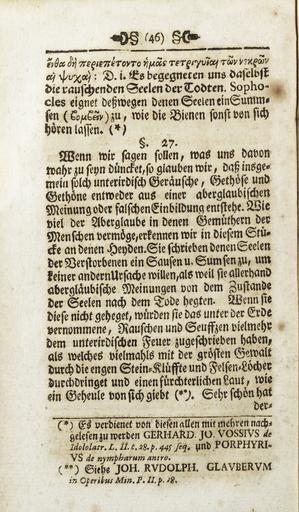 (46)
ἔνθα δὴ περιεπέτοντο ἡμᾶς τετριγυῖαι τῶν νεκρῶν
αἱ ψυχαί: D. i. Es begegneten uns daselbst
die rauschenden Seelen der Todten. Sopho-
cles eignet deßwegen denen Seelen ein Sum̃-
sen (βομβεῖν) zu, wie die Bienen sonst von sich
hören lassen. (*)
§. 27.
Wenn wir sagen sollen, was uns davon
wahr zu seyn düncket, so glauben wir, daß insge-
mein solch unterirdisch Geräusche, Gethöse und
Gethöne entweder aus einer abergläubischen
Meinung oder falschen Einbildung entstehe. Wie
viel der Aberglaube in denen Gemüthern der
Menschen vermöge, erkennen wir in diesem Stü-
cke an denen Heyden. Sie schrieben denen Seelen
der Verstorbenen ein Sausen u. Sumsen zu, um
keiner andern Ursache willen, als weil sie allerhand
abergläubische Meinungen von dem Zustande
der Seelen nach dem Tode hegten. Wenn sie
diese nicht geheget, würden sie das unter der Erde
vernommene, Rauschen und Seuffzen vielmehr
dem unterirdischen Feuer zugeschrieben haben,
als welches vielmahls mit der grösten Gewalt
durch die engen Stein-Klüffte und Felsen-Löcher
durchdringet und einen fürchterlichen Laut, wie
ein Geheule von sich giebt (**). Sehr schön hat
der-
(*) Es verdienet von diesen allen mit mehren nach-
gelesen zu werden GERHARD. JO. VOSSIVS de
Idololatr. L. II. c. 28. p. 445 seq. und PORPHYRI-
VS de nympharum antro.
(**) Siehe JOH. RVDOLPH. GLAVBERVM
in Operibus Min. P. II. p. 18.